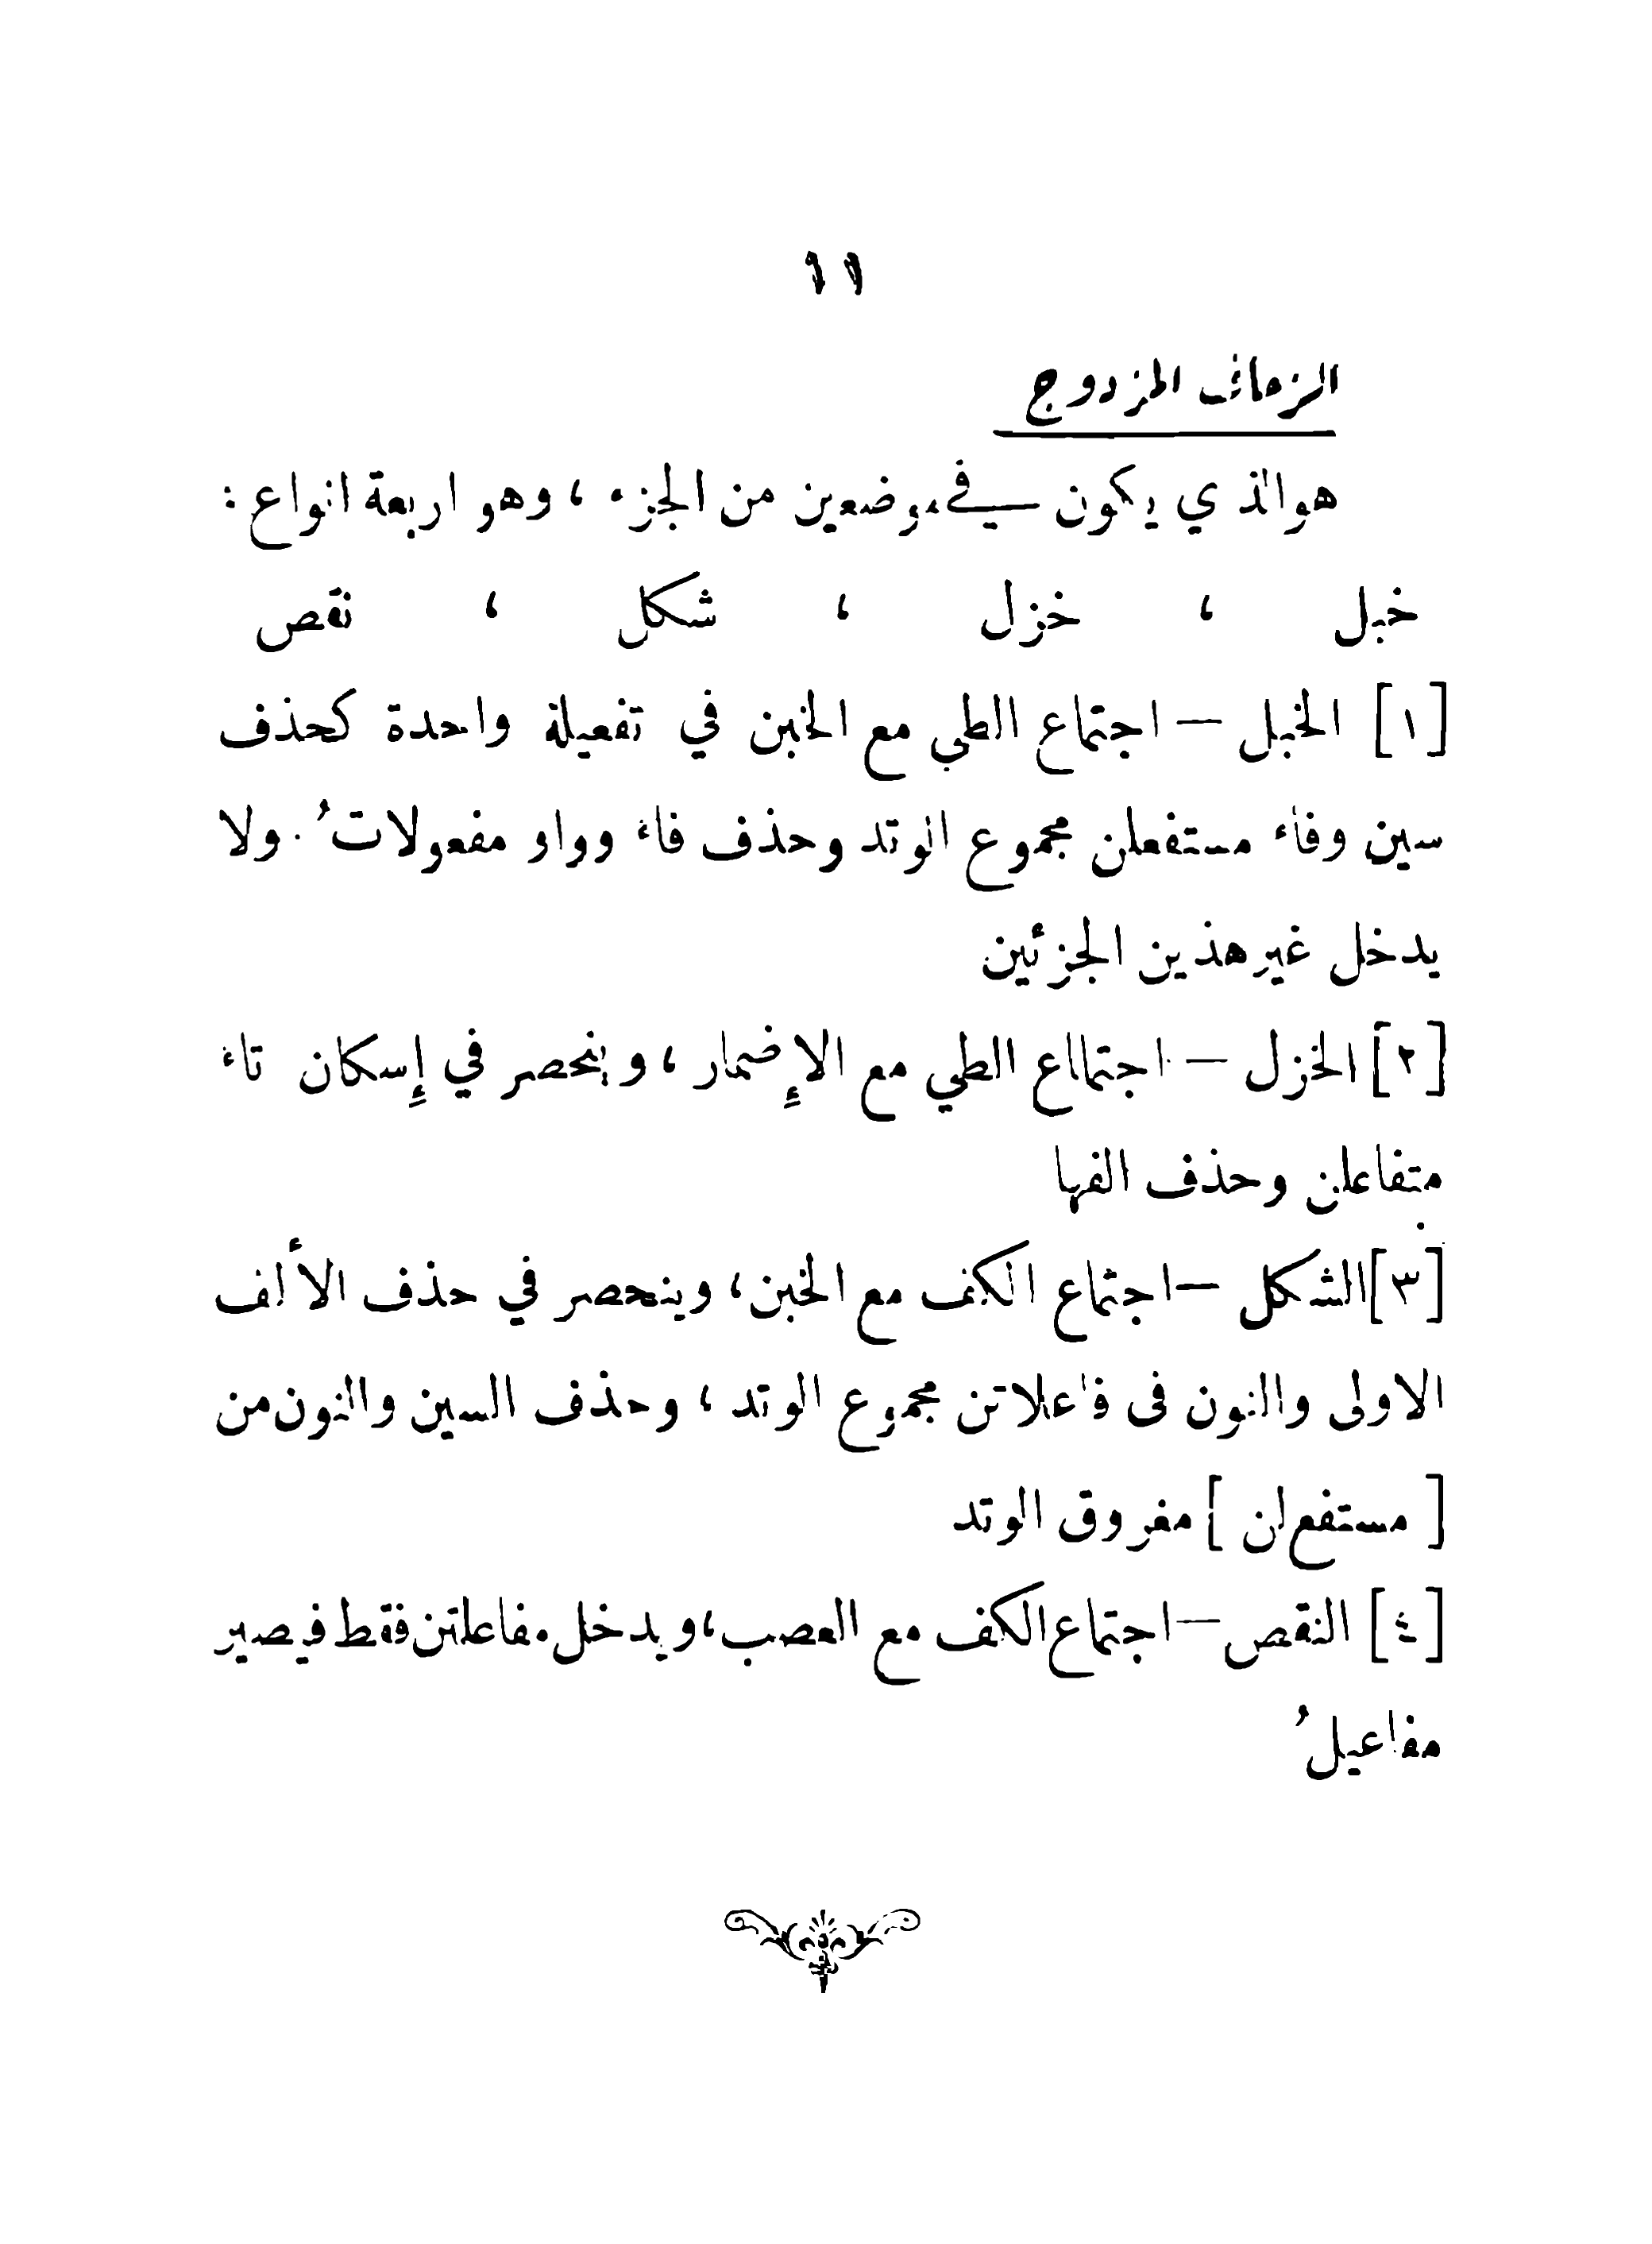 ١١
الزحاف المزدوج
هو الذي يكون في موضعين من الجزء ، وهو اربعة انواع :
خبل ، خزل ، شكل ، نقص
[١] الخبل — اجتماع الطي مع الخبن في تفعيلة واحدة كحذف
سين وفاء مستفعلن مجموع الوتد وحذف فاء وواو مفعولاتُ . ولا
يدخل غير هذين الجزئين
[٢] الخزل — اجتمااع الطي مع الإِضمار ، وينحصر في إِسكان تاء
متفاعلن وحذف الفها
[٣] الشكل — اجتماع الكف مع الخبن ، وينحصر في حذف الألف
الاولى والنون فى فاعلاتن مجموع الوتد ، وحذف السين والنون من
[ مستفع لن ] مفروق الوتد
[٤] النقص — اجتماع الكف مع العصب ، ويدخل مفاعلتن فقط فيصير
مفاعيلُ